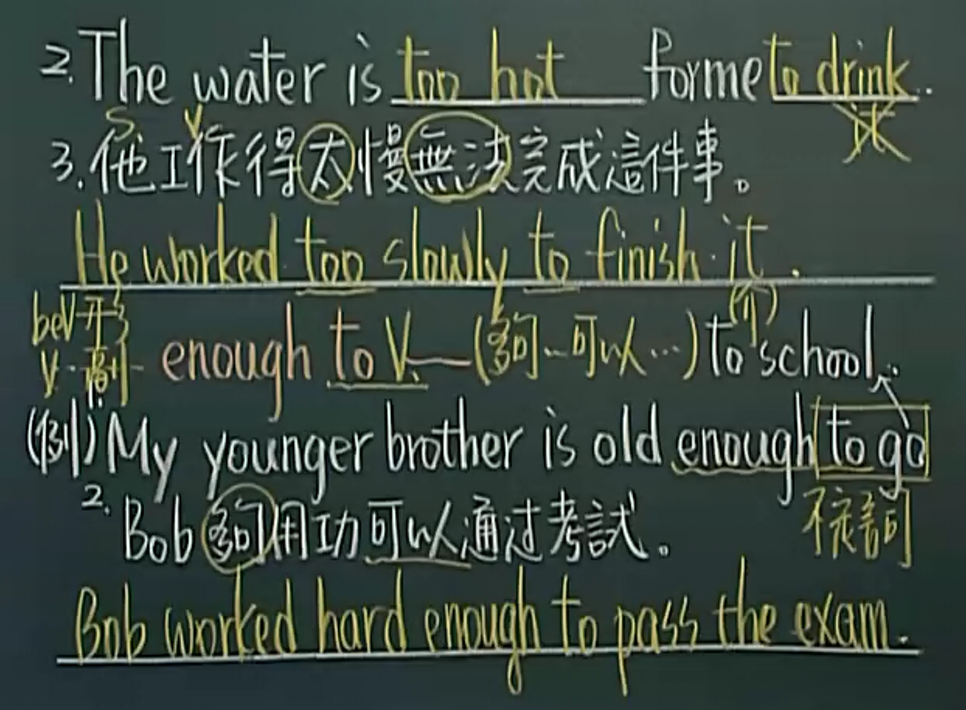 2. The water is too hot for me to drink.
S V it
3. 他工作得太慢無法完成這件事。
He worked too slowly to finish it.
beV形
V.副 enough to V. (夠...可以...) to school.
(例) My younger brother is old enough to go
不定詞
2. Bob 夠用功可以通过考試。
Bob worked hard enough to pass the exam.